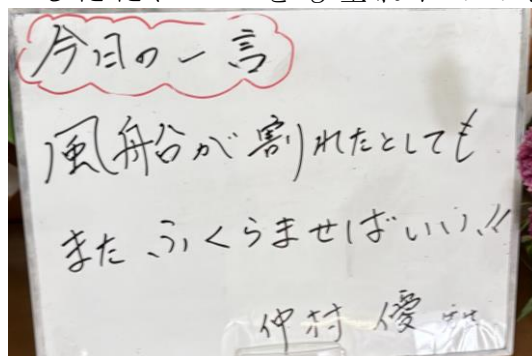 今日の一言
風船台が割れたとしても
また、ふくらませばいい!!
仲村 優